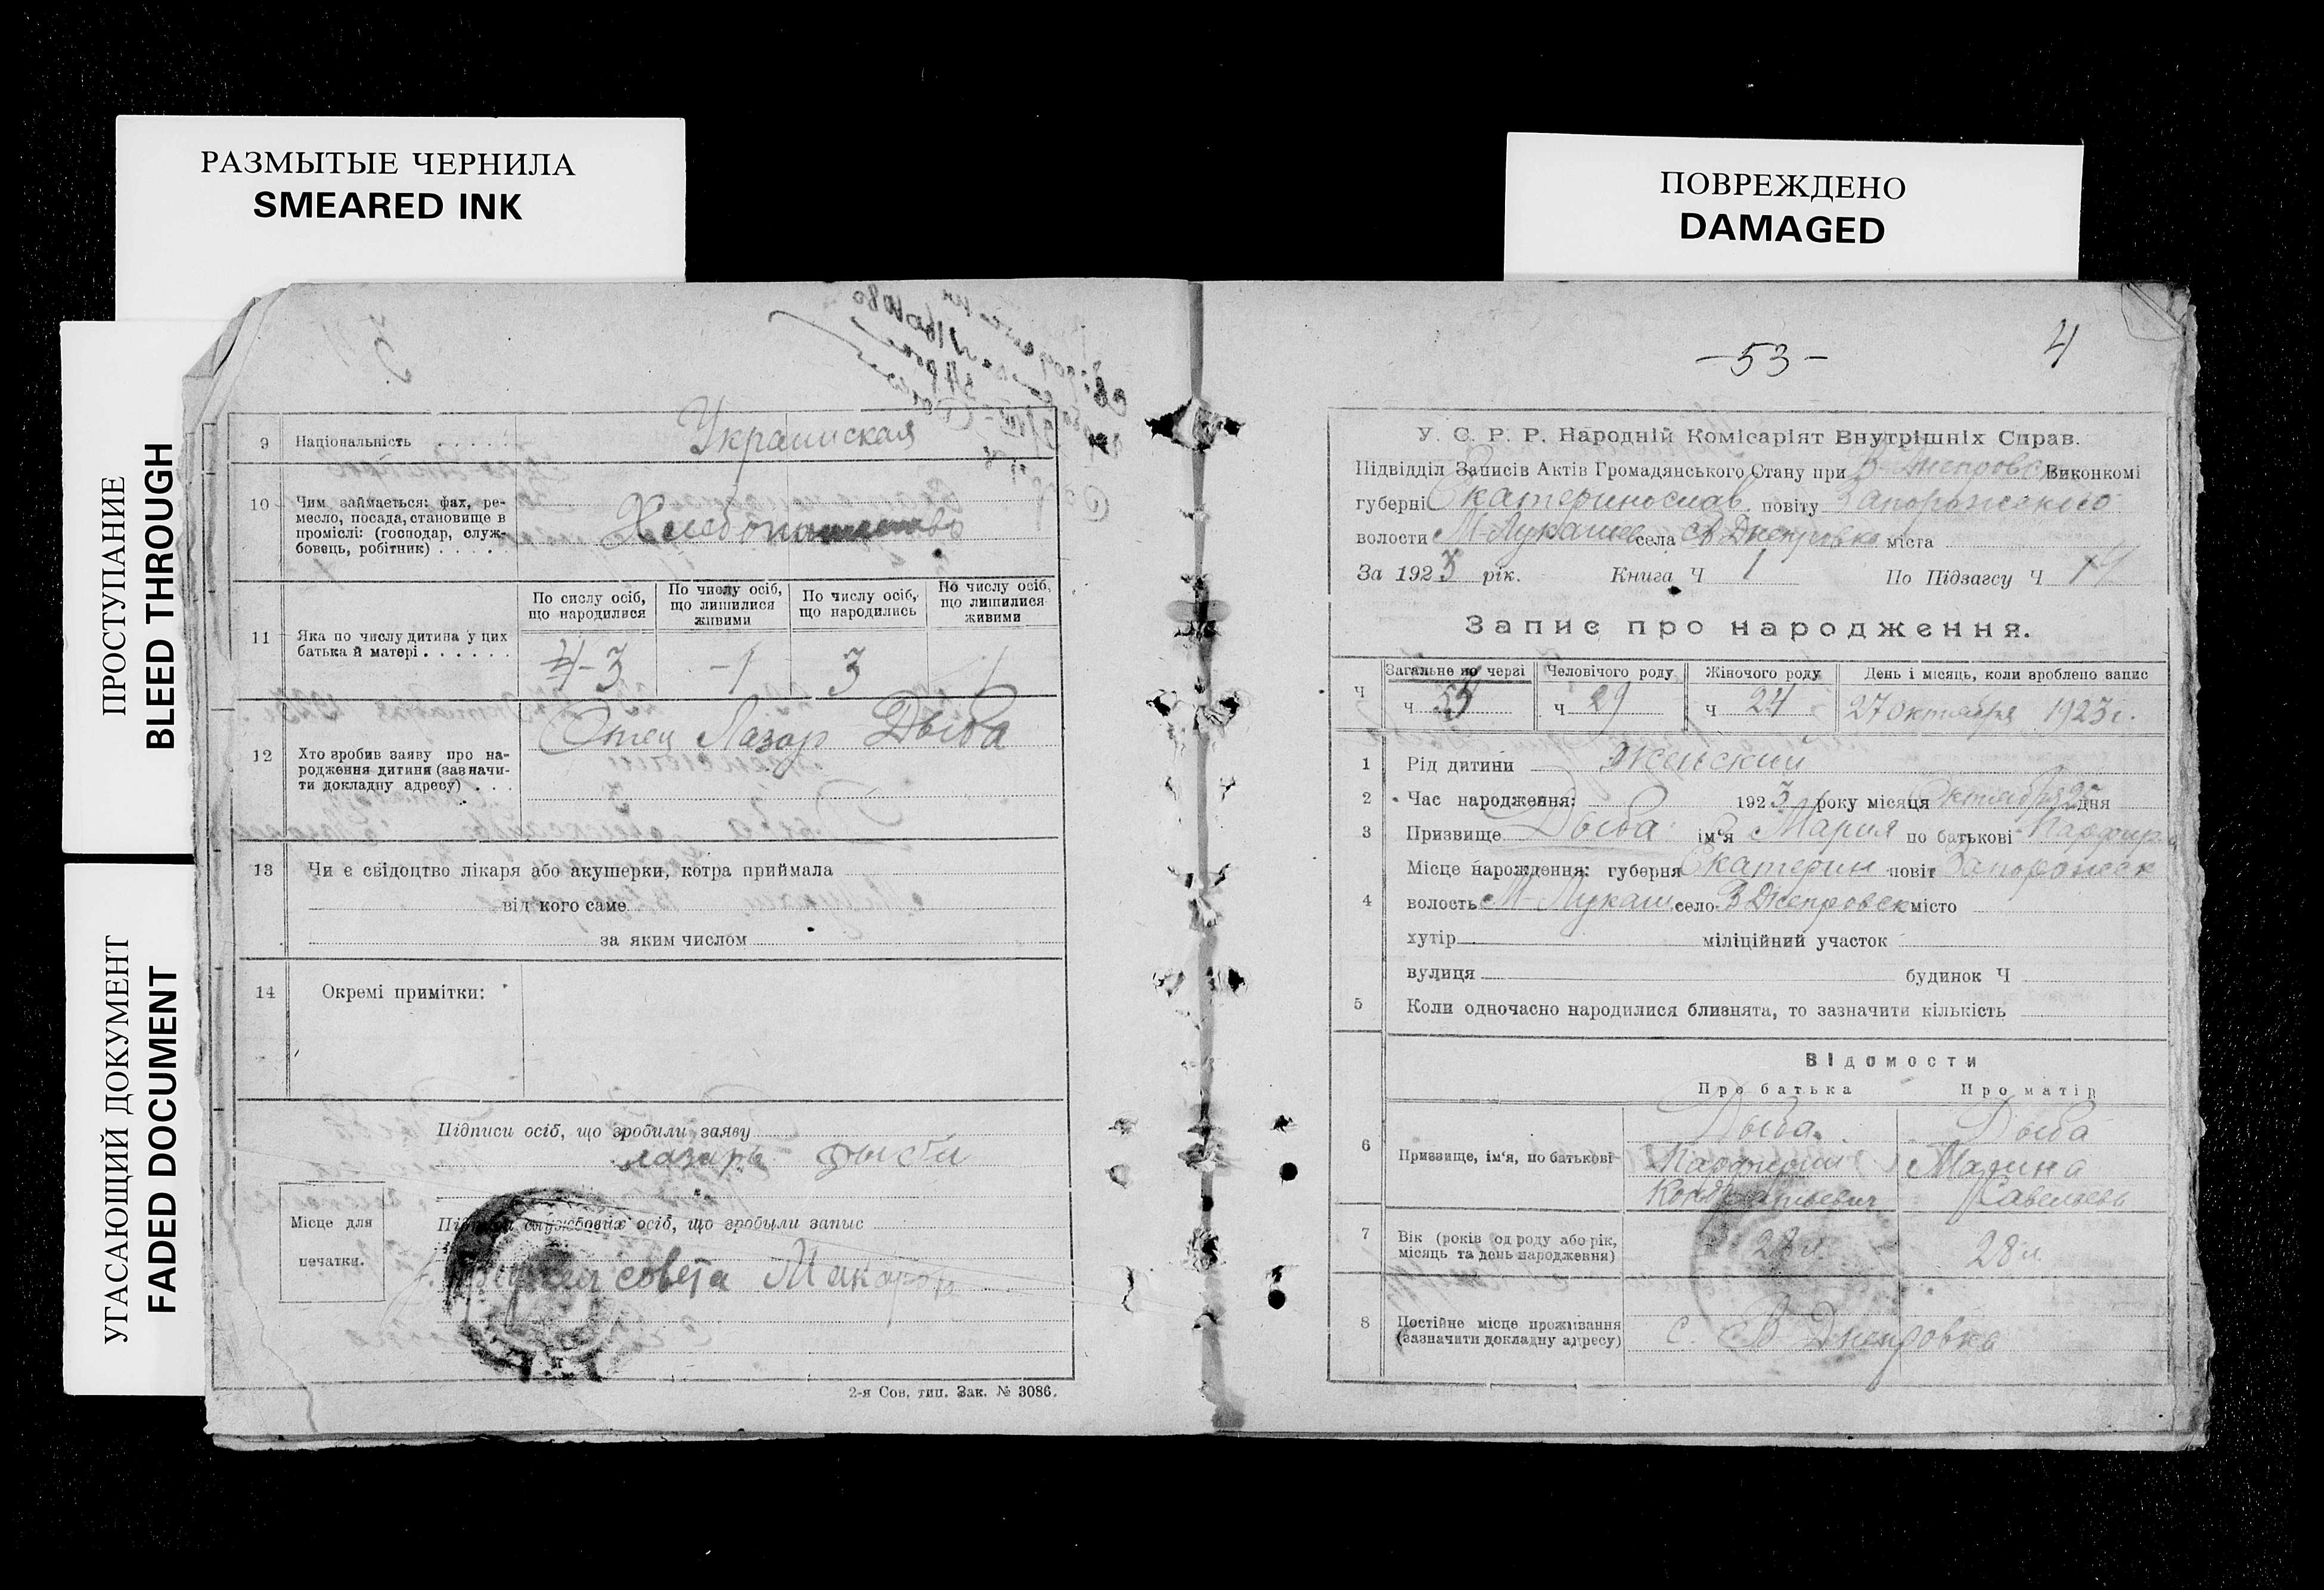 РАЗМЫТЫЕ ЧЕРНИЛА
SMEARED INK
ПОВРЕЖДЕНО
DAMAGED
ПРОСТУПАНИЕ
BLEED THROUGH
УГАСАЮЩИЙ ДОКУМЕНТ
FADED DOCUMENT
9 Національність . . . . . Украинская
10 Чим займається: фах, ре-
месло, посада, становище в
проміслі: (господар, служ-
бовець, робітник) . . . .
Хлебопашество
11 Яка по числу дитина у цих
батька й матері . . . . . .
По сислу осіб,
що народилися
По числу осіб,
що лишилися
живими
По числу осіб,
що народились
По числу осіб,
що лишилися
живими
4-3 -1 3 1
12 Хто зробив заяву про на-
родження дитини (зазначи-
ти докладну адресу) . . .
Отец Лазар Дыба
13 Чи є свідоцтво лікаря або акушерки, котра приймала
від кого саме
за яким числом
14 Окремі примітки:
Підписи осіб, що зробили заяву
лазарь дыба
Місце для
печатки.
Підписи службових осіб, що зробыли запыс
совета Макаров
2-я Сов. тип. Зак. № 3086.
-53- 4
У. С. Р. Р. Народній Комісаріят Внутрішніх Справ.
Підвідділ Записів Актів Громадянського Стану при В-Днепровск Виконкомі
губерні Екатеринослав. повіту Запорожского
волости М-Лукашев села В Днепровка міста
За 1923 рік. Книга Ч 1 По Підзагсу Ч
Запис про народження.
Ч
Загальне по черзі Человічого роду Жіночого роду День і місяць, коли зроблено запис
ч 53 ч 29 ч 24 27 октября 1923 г.
1 Рід дитини женский
2 Час народження: 1923 року місяця Октября 25 дня
3 Призвище Дыба ім'я Мария по батькові Парфир
4 Місце нарождення: губерня Екатерин повіт Запорожск
волость М-Лукаш село В Днепровск місто
хутір міліційний участок
вулиця будинок Ч
5 Коли одночасно народилися близнята, то зазначити кількість
Відомости
Про батька Про матір
6 Призвище, ім'я, по батькові
Дыба Дыба
Парфирий Марина
Кондратьевич Савельевн
7 Вік (років од роду або рік,
місяць та день народження)
28 л. 28 л.
8 Постійне місце проживання
(зазначити докладну адресу)
с. В Днепровка